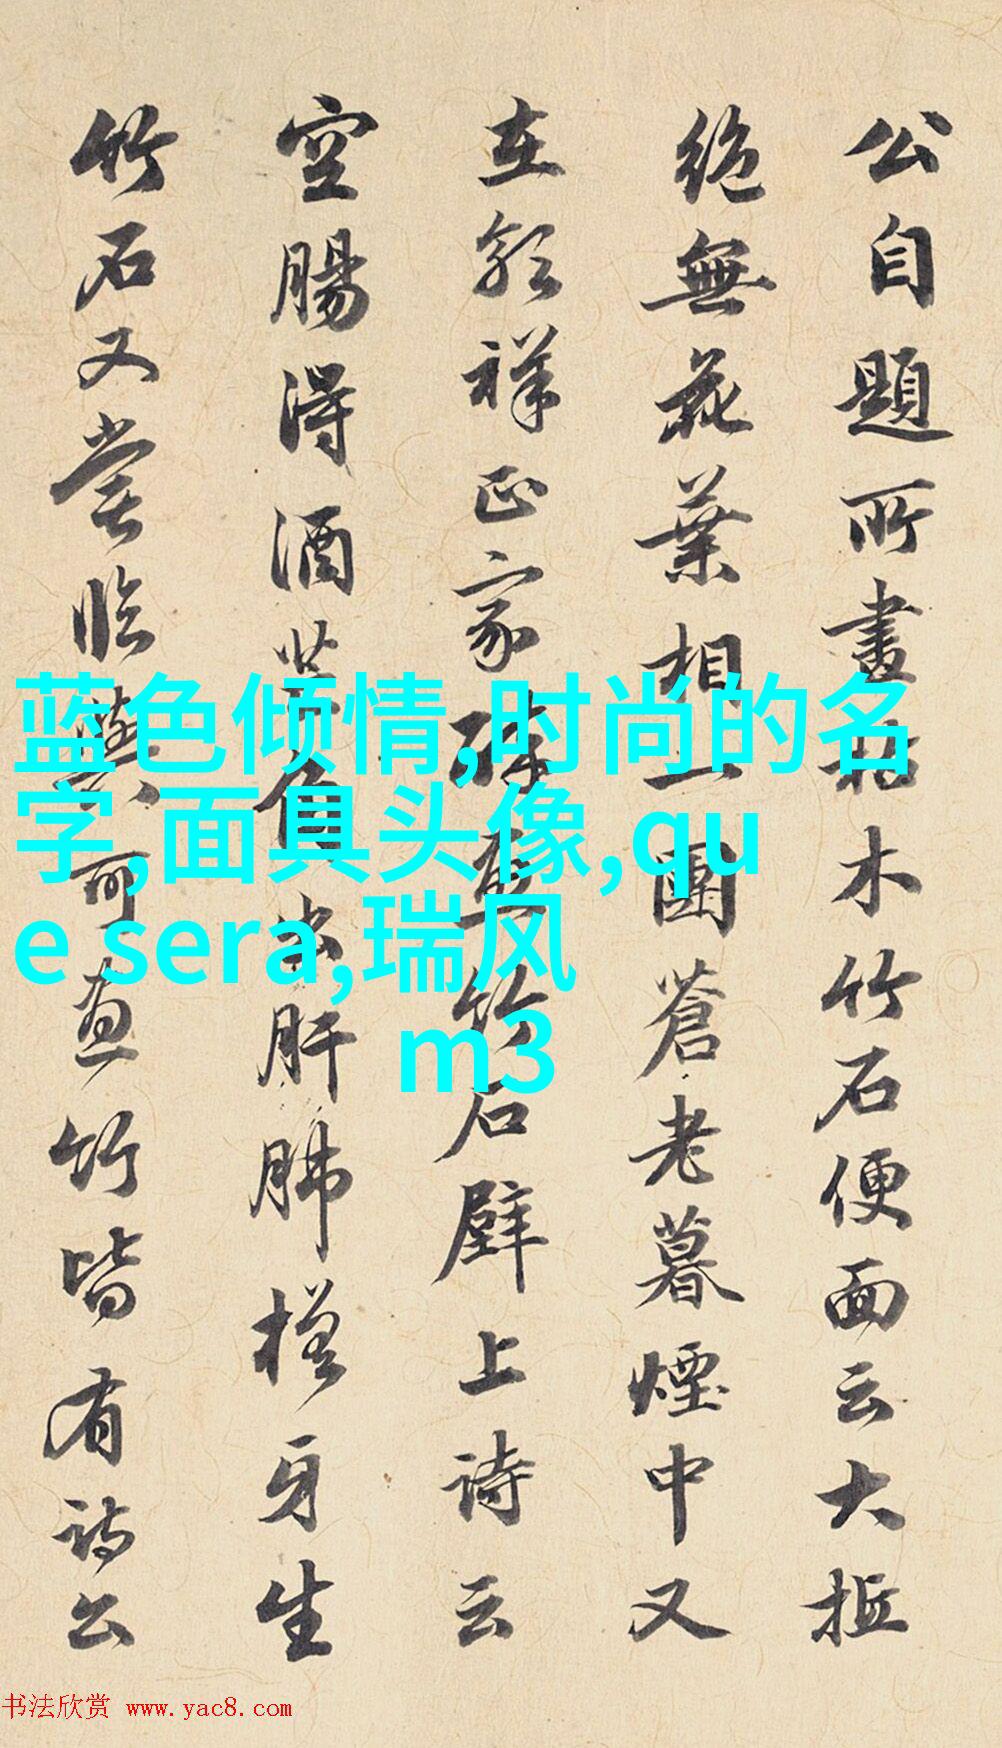 公自題所畫枯木竹石便面云大抵
絕無花葉相一團蒼老暮煙中又
在郭祥正家醉畫竹石壁上詩云
空腸得酒芒角出肝肺槎牙生
竹石又嘗臨與可畫竹皆有詩公
蓝色倾情,时尚的名
字,面具头像,qu
e sera,瑞风
m3
书法欣赏 www.yac8.com